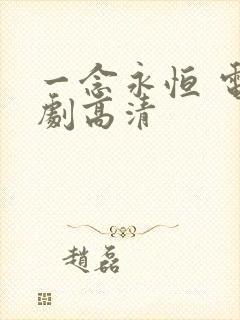 一念永恒 電
劇高清
趙磊